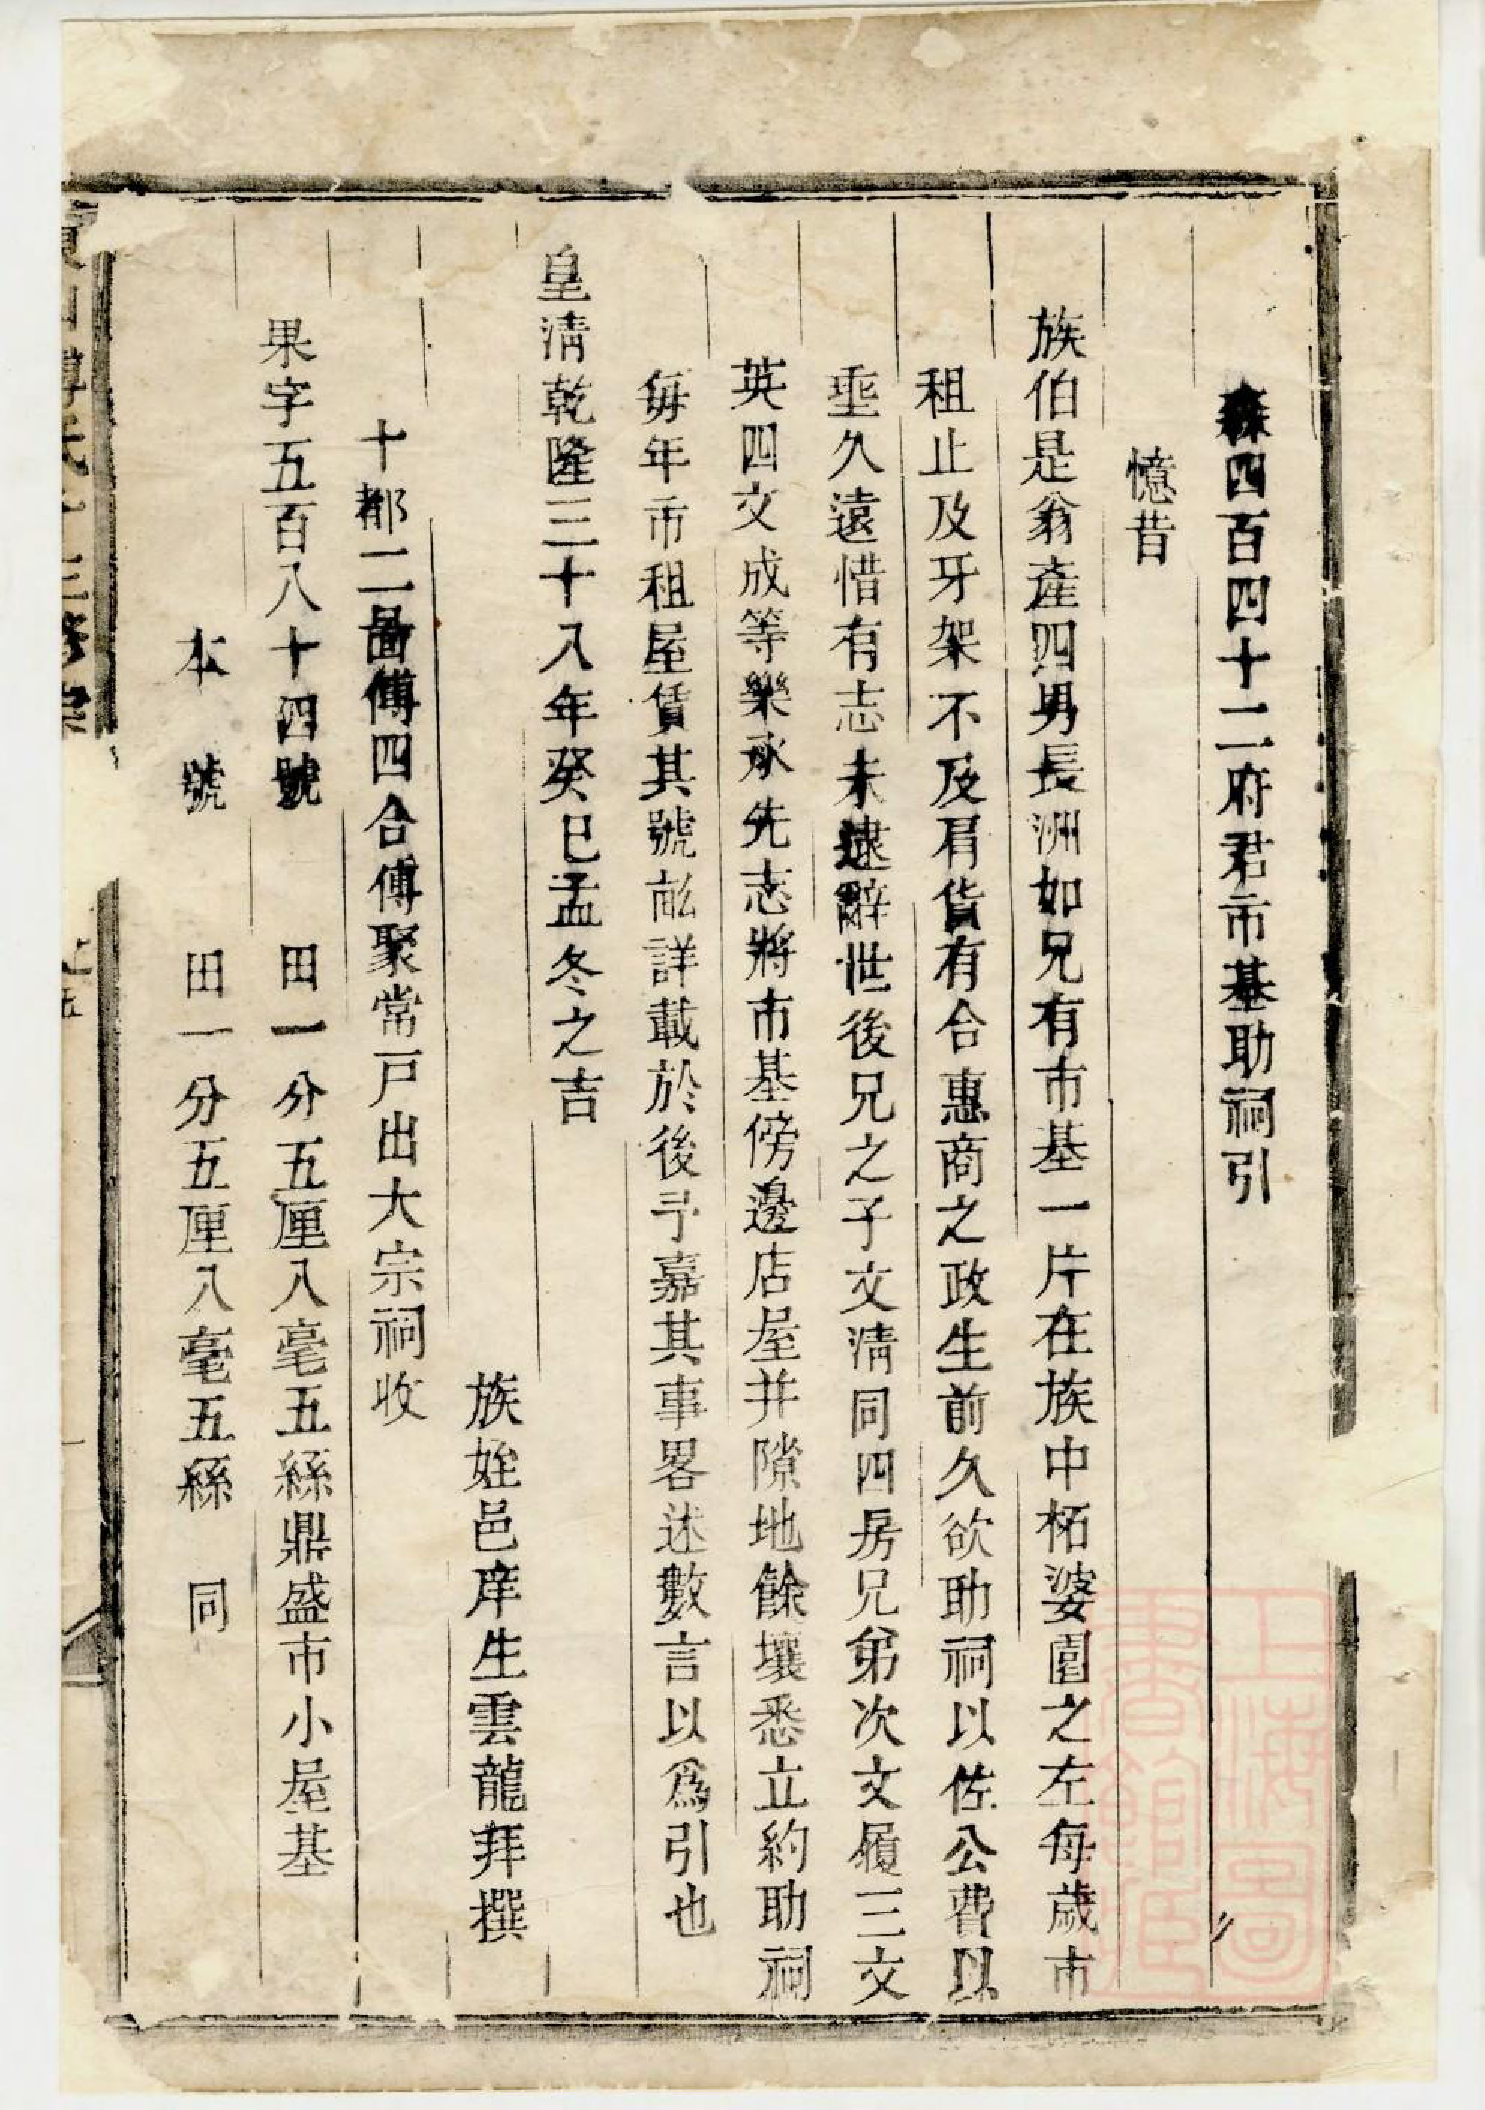 森四百四十二府君市基助祠引
憶昔
族伯是翁產四男長洲如兄有市基一片在族中柘婆園之左每歲市
租止及牙架不及肩貨有合惠商之政生前久欲助祠以佐公費以
垂久遠惜有志未逮辭世後兄之子文淸同四房兄弟次文履三文
英四文成等樂承先志將市基傍邊店屋并隙地餘壤悉立約助祠
每年市租屋賃其號畝詳載於後予嘉其事畧述數言以爲引也
皇淸乾隆三十八年癸巳孟冬之吉
族姪邑庠生雲龍拜撰
十都二啚傅四合傅聚常戸出大宗祠收
果字五百八十四號 田一分五厘八毫五絲鼎盛市小屋基
本號 田一分五厘八毫五絲 同
上海圖書館藏